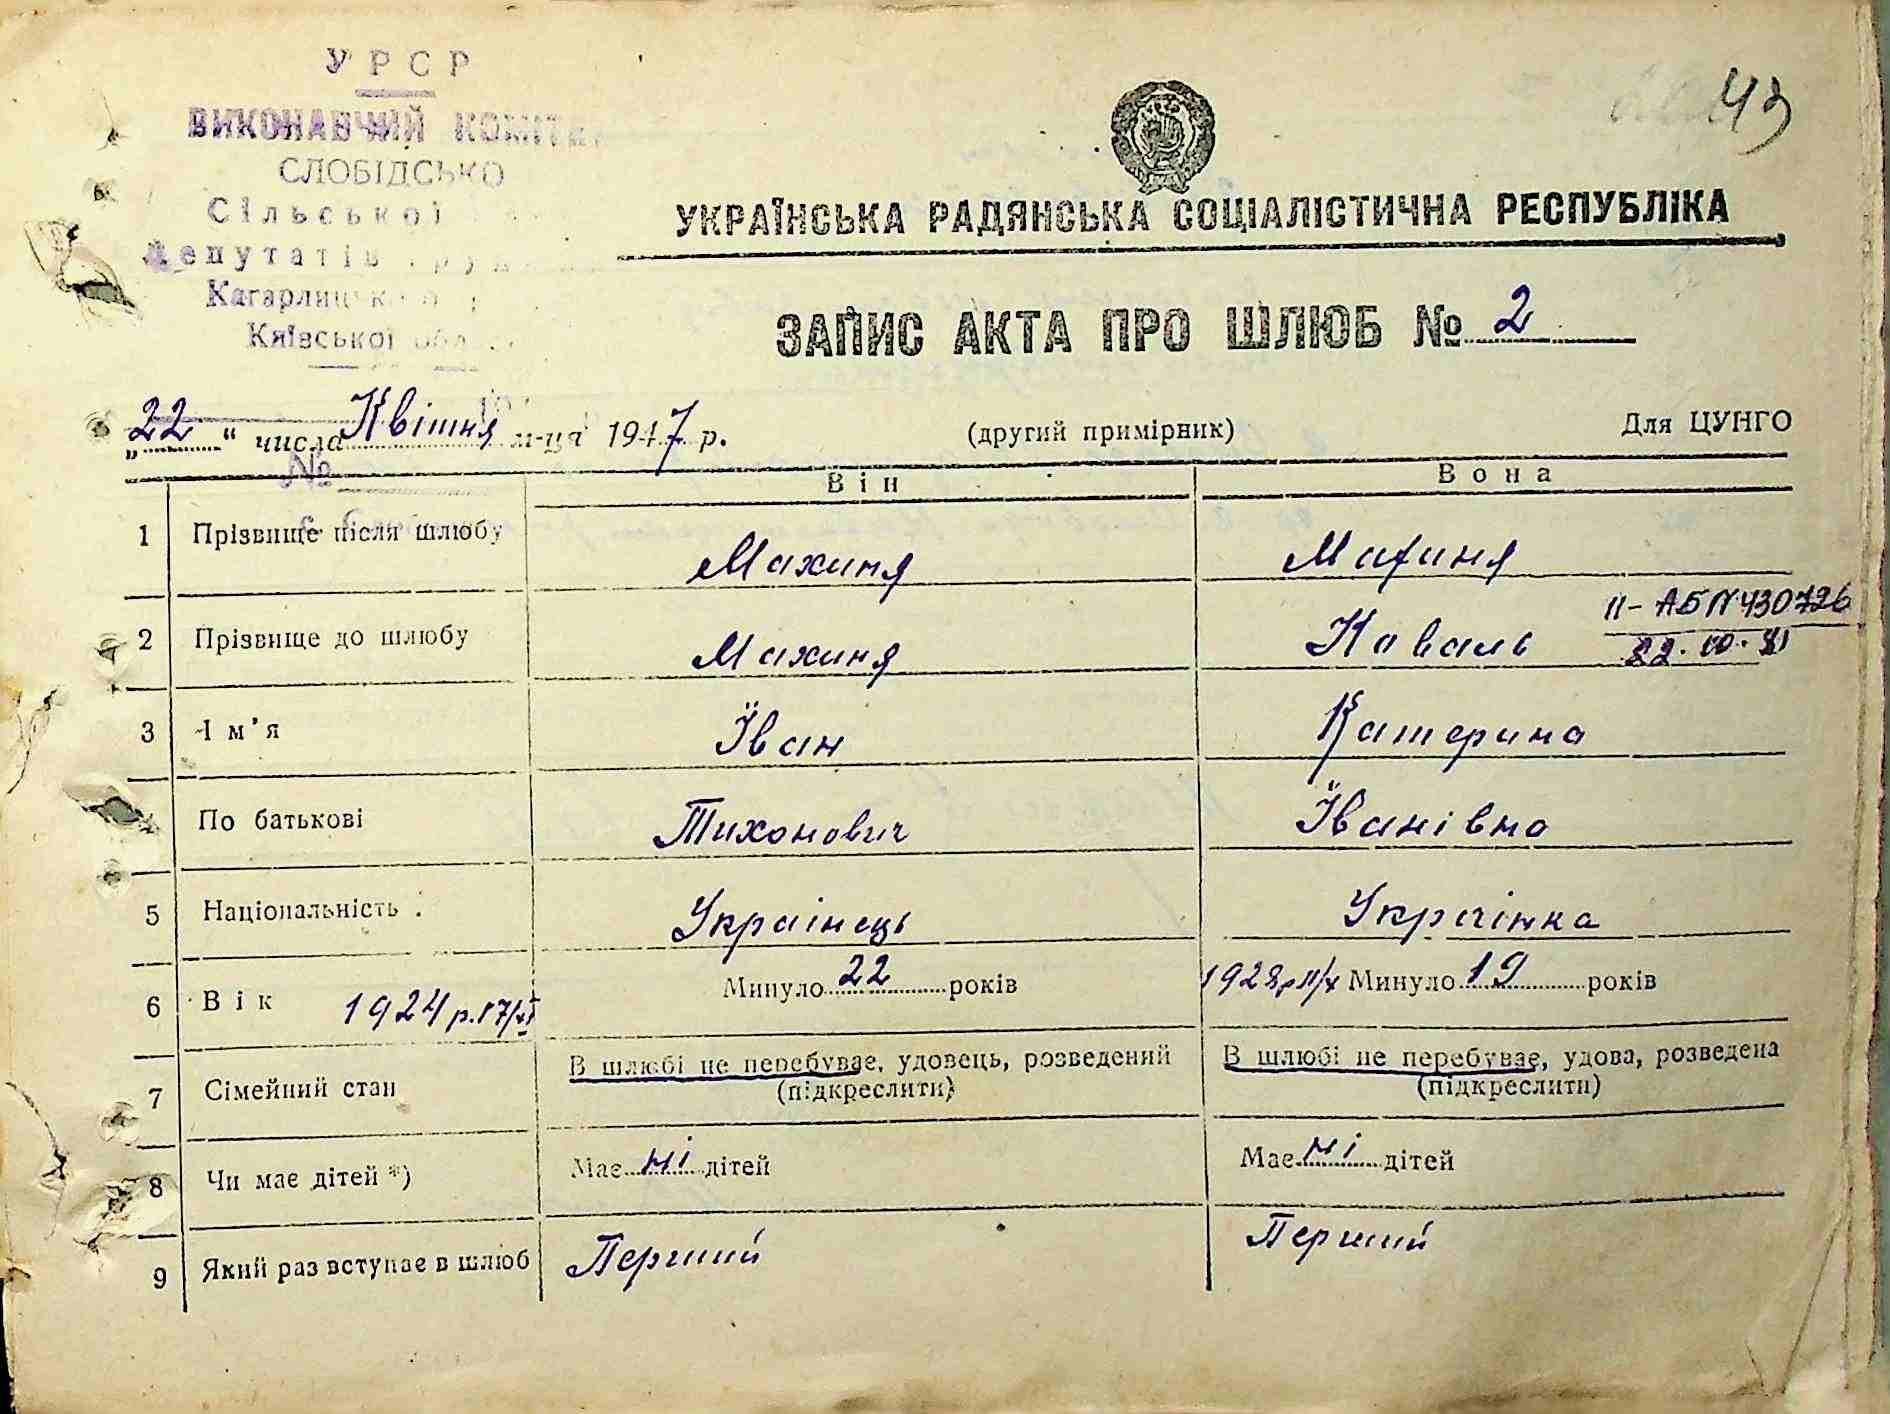 У Р С Р
ВИКОНАВЧИЙ КОМІТЕ
СЛОБІДСЬКО
Сільської
депутатів
Кагарлицьк
Київської обл
43
УКРАЇНСЬКА РАДЯНСЬКА СОЦІАЛІСТИЧНА РЕСПУБЛІКА
ЗАПИС АКТА ПРО ШЛЮБ № 2
„22“ числа Квітня м-ця 1947 р. (другий примірник) Для ЦУНГО
№
Він Вона
1 Прізвище після шлюбу Махиня Махиня
2 Прізвище до шлюбу Махиня Коваль II-АБ N 430726
3 Ім'я Їван Катерина
По батькові Тихонович Їванівна
5 Національність Украінець Украінка
6 Вік 1924 р. 17/XI Минуло 22 років 1928 р II/X Минуло 19 років
7 Сімейний стан В шлюбі не перебуває, удовець, розведений В шлюбі не перебуває, удова, розведена
(підкреслити) (підкреслити)
8 Чи має дітей *) Має ні дітей Має ні дітей
9 Який раз вступає в шлюб Перший Перший